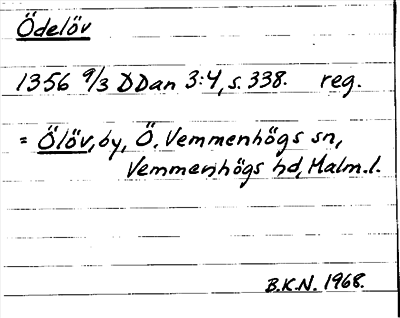 Ödelöv
1356 9/3 DDan 3:4, s. 338. reg.
= Ölöv, by, Ö. Vemmenhögs sn,
Vemmenhögs hd, Malm.l.
B.K.N. 1968.